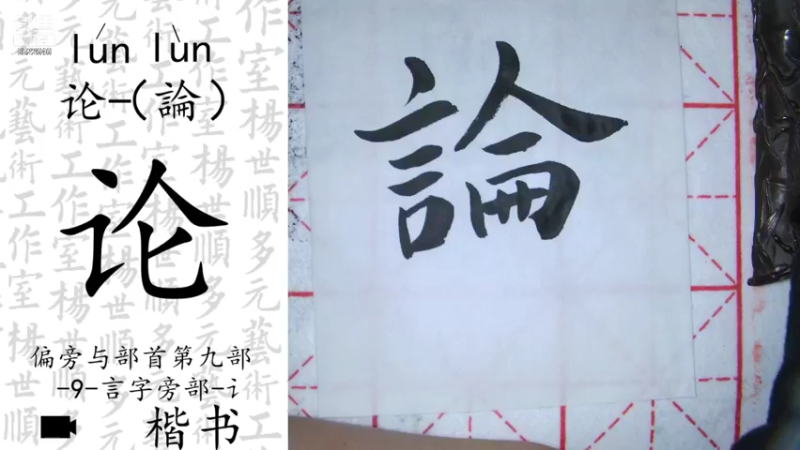 lún lùn
论-(論)
论
偏旁与部首第九部
-9-言字旁部-讠
楷书
論
楊世順多元藝術工作室